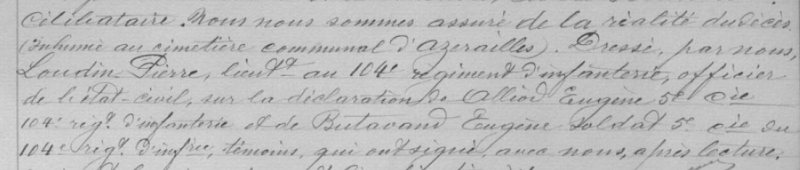 célibataire. Nous nous sommes assuré de la réalité du décès
(Inhumé au cimetière communal d'Azerailles). Dressé, par nous,
Loudin Pierre, lieut^t au 104^e régiment d'infanterie, officier
de l'état-civil, sur la déclaration de Alliod Eugène 5^e C^ie
104^e rég^t. d'infanterie et de Butavand Eugène soldat 5^e C^ie du
104^e rég^t. d'inf^rie, témoins, qui ont signé, avec nous, après lecture.